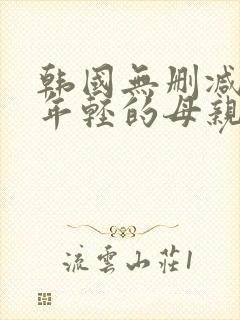 韩國無删减
年輕的母親
流雲山莊1